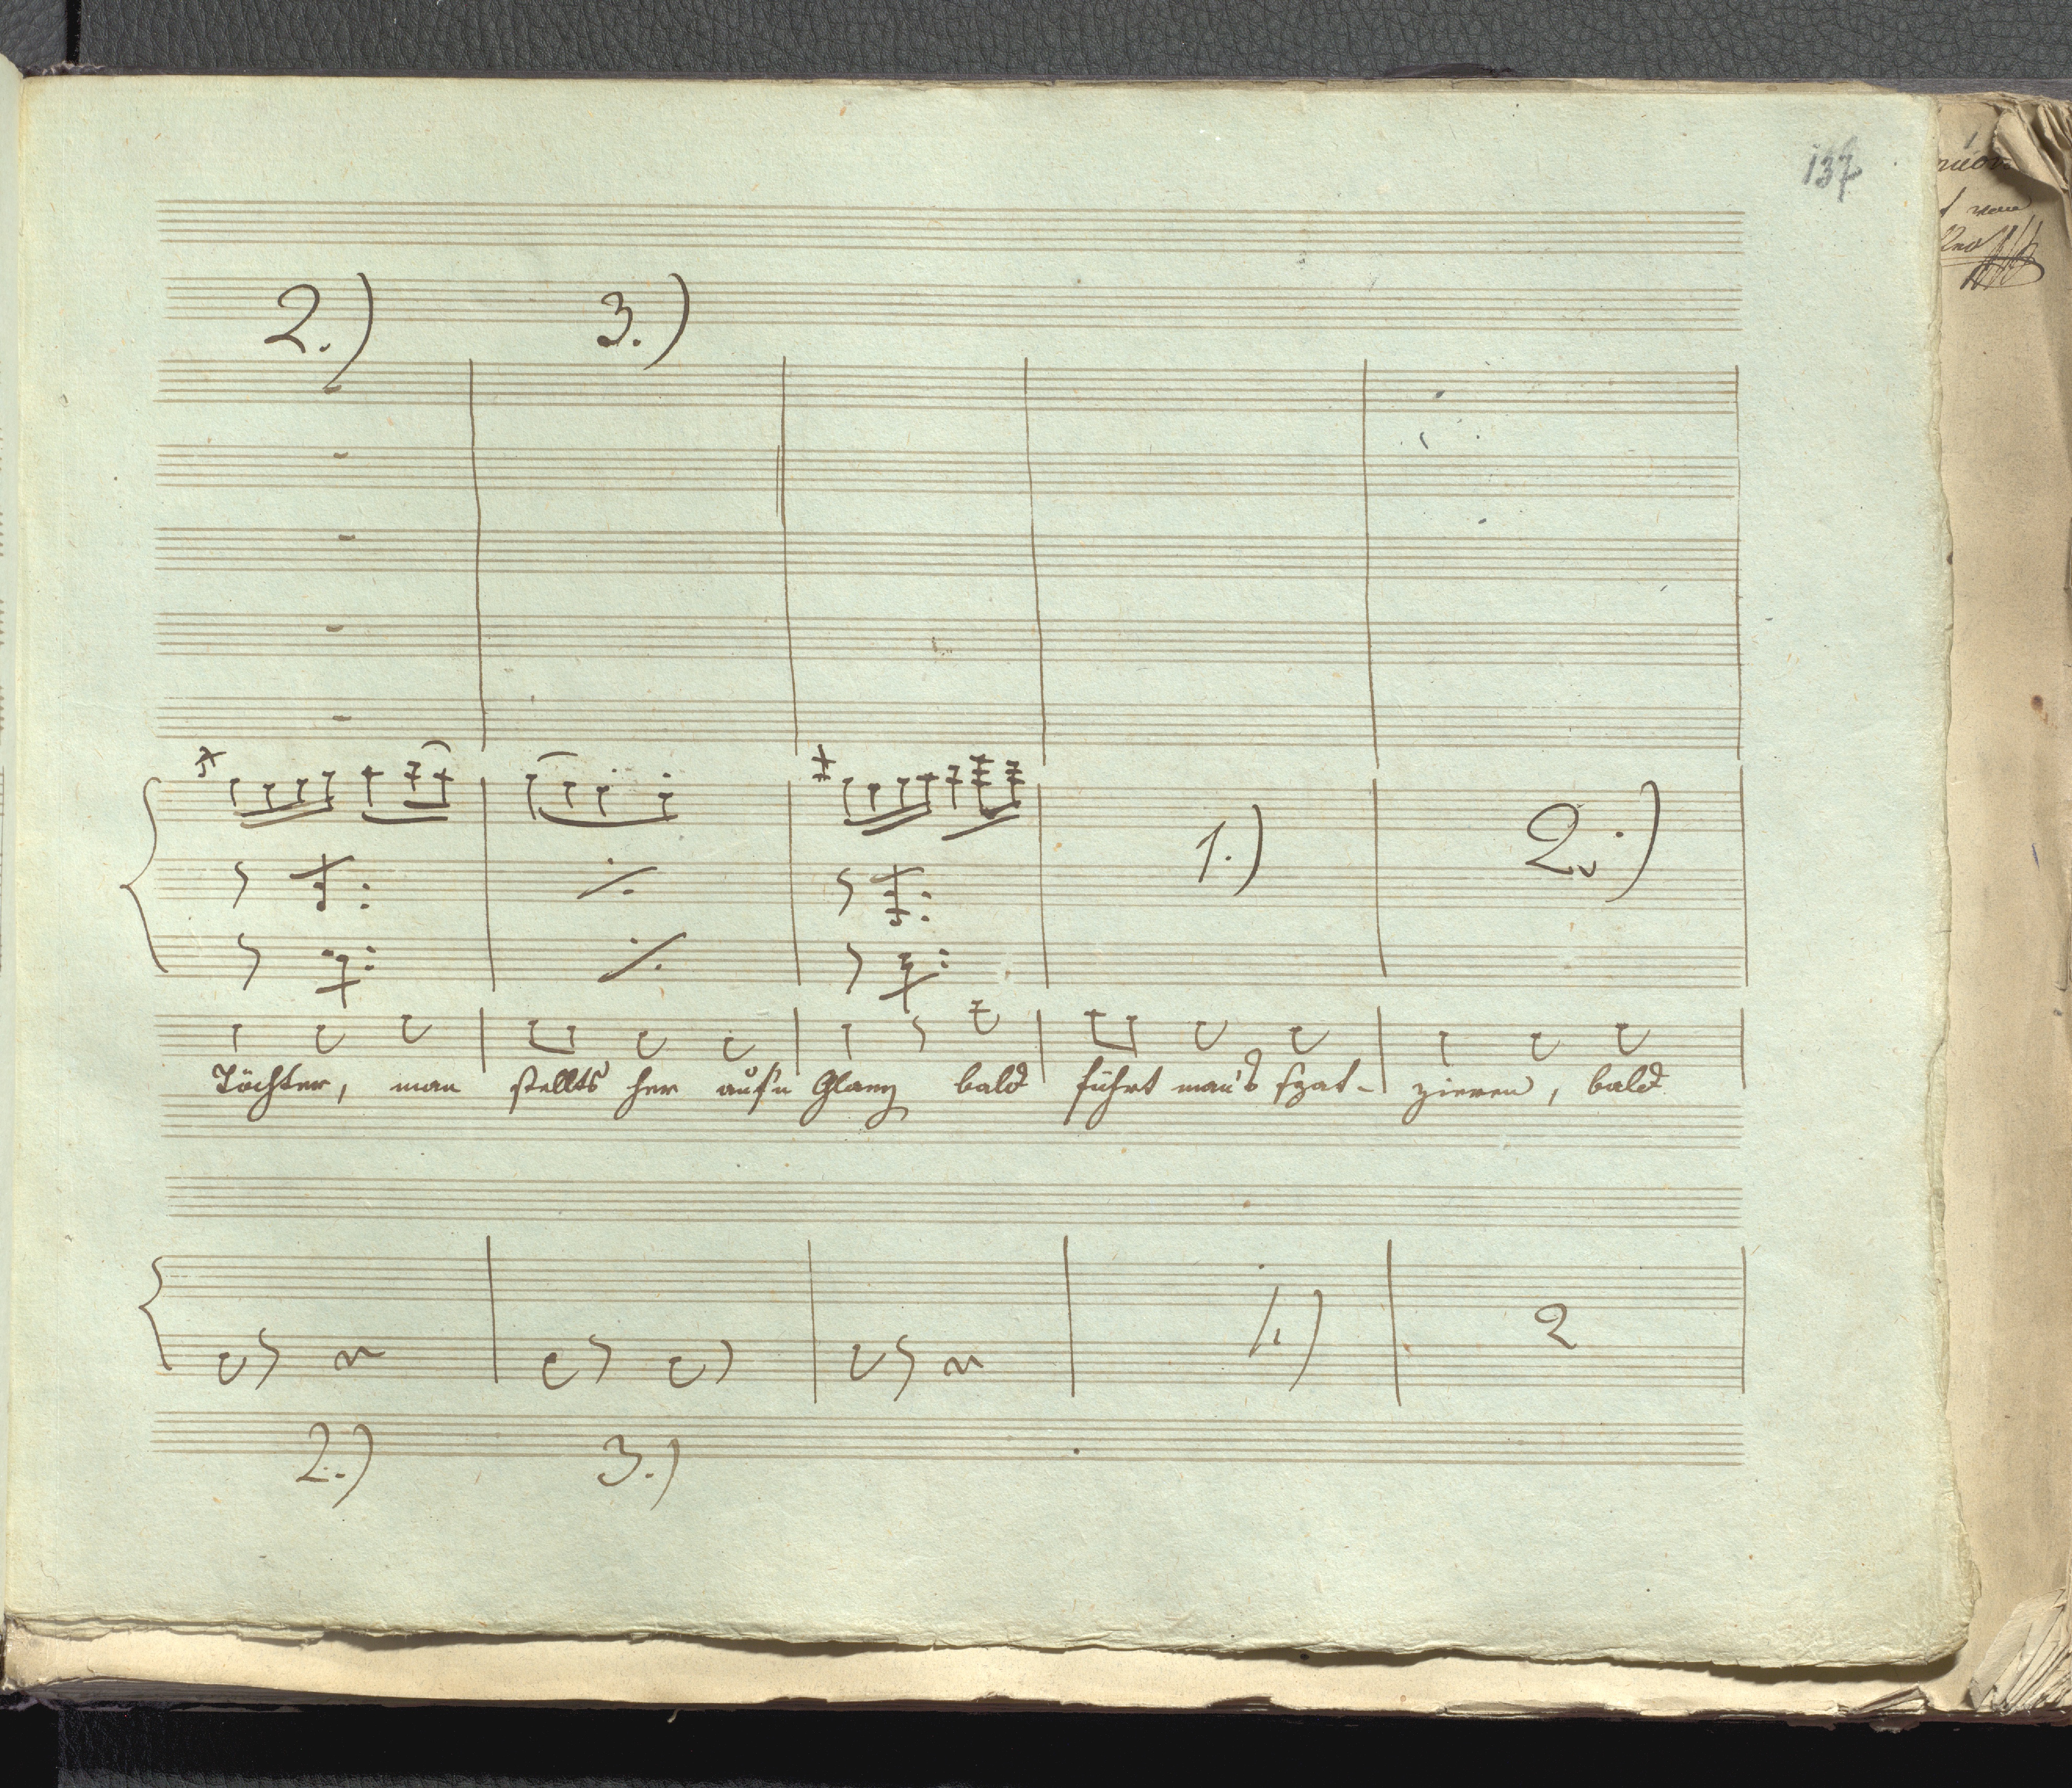 137
2.) 3.)
1.) 2.)
Töchter, man stellts her auf'n Glanz bald führt man's spat- zieren, bald
1.) 2
2.) 3.)